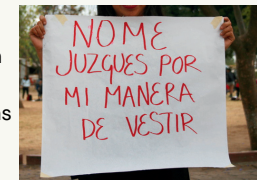 NO ME
JUZGUES POR
MI MANERA
DE VESTIR